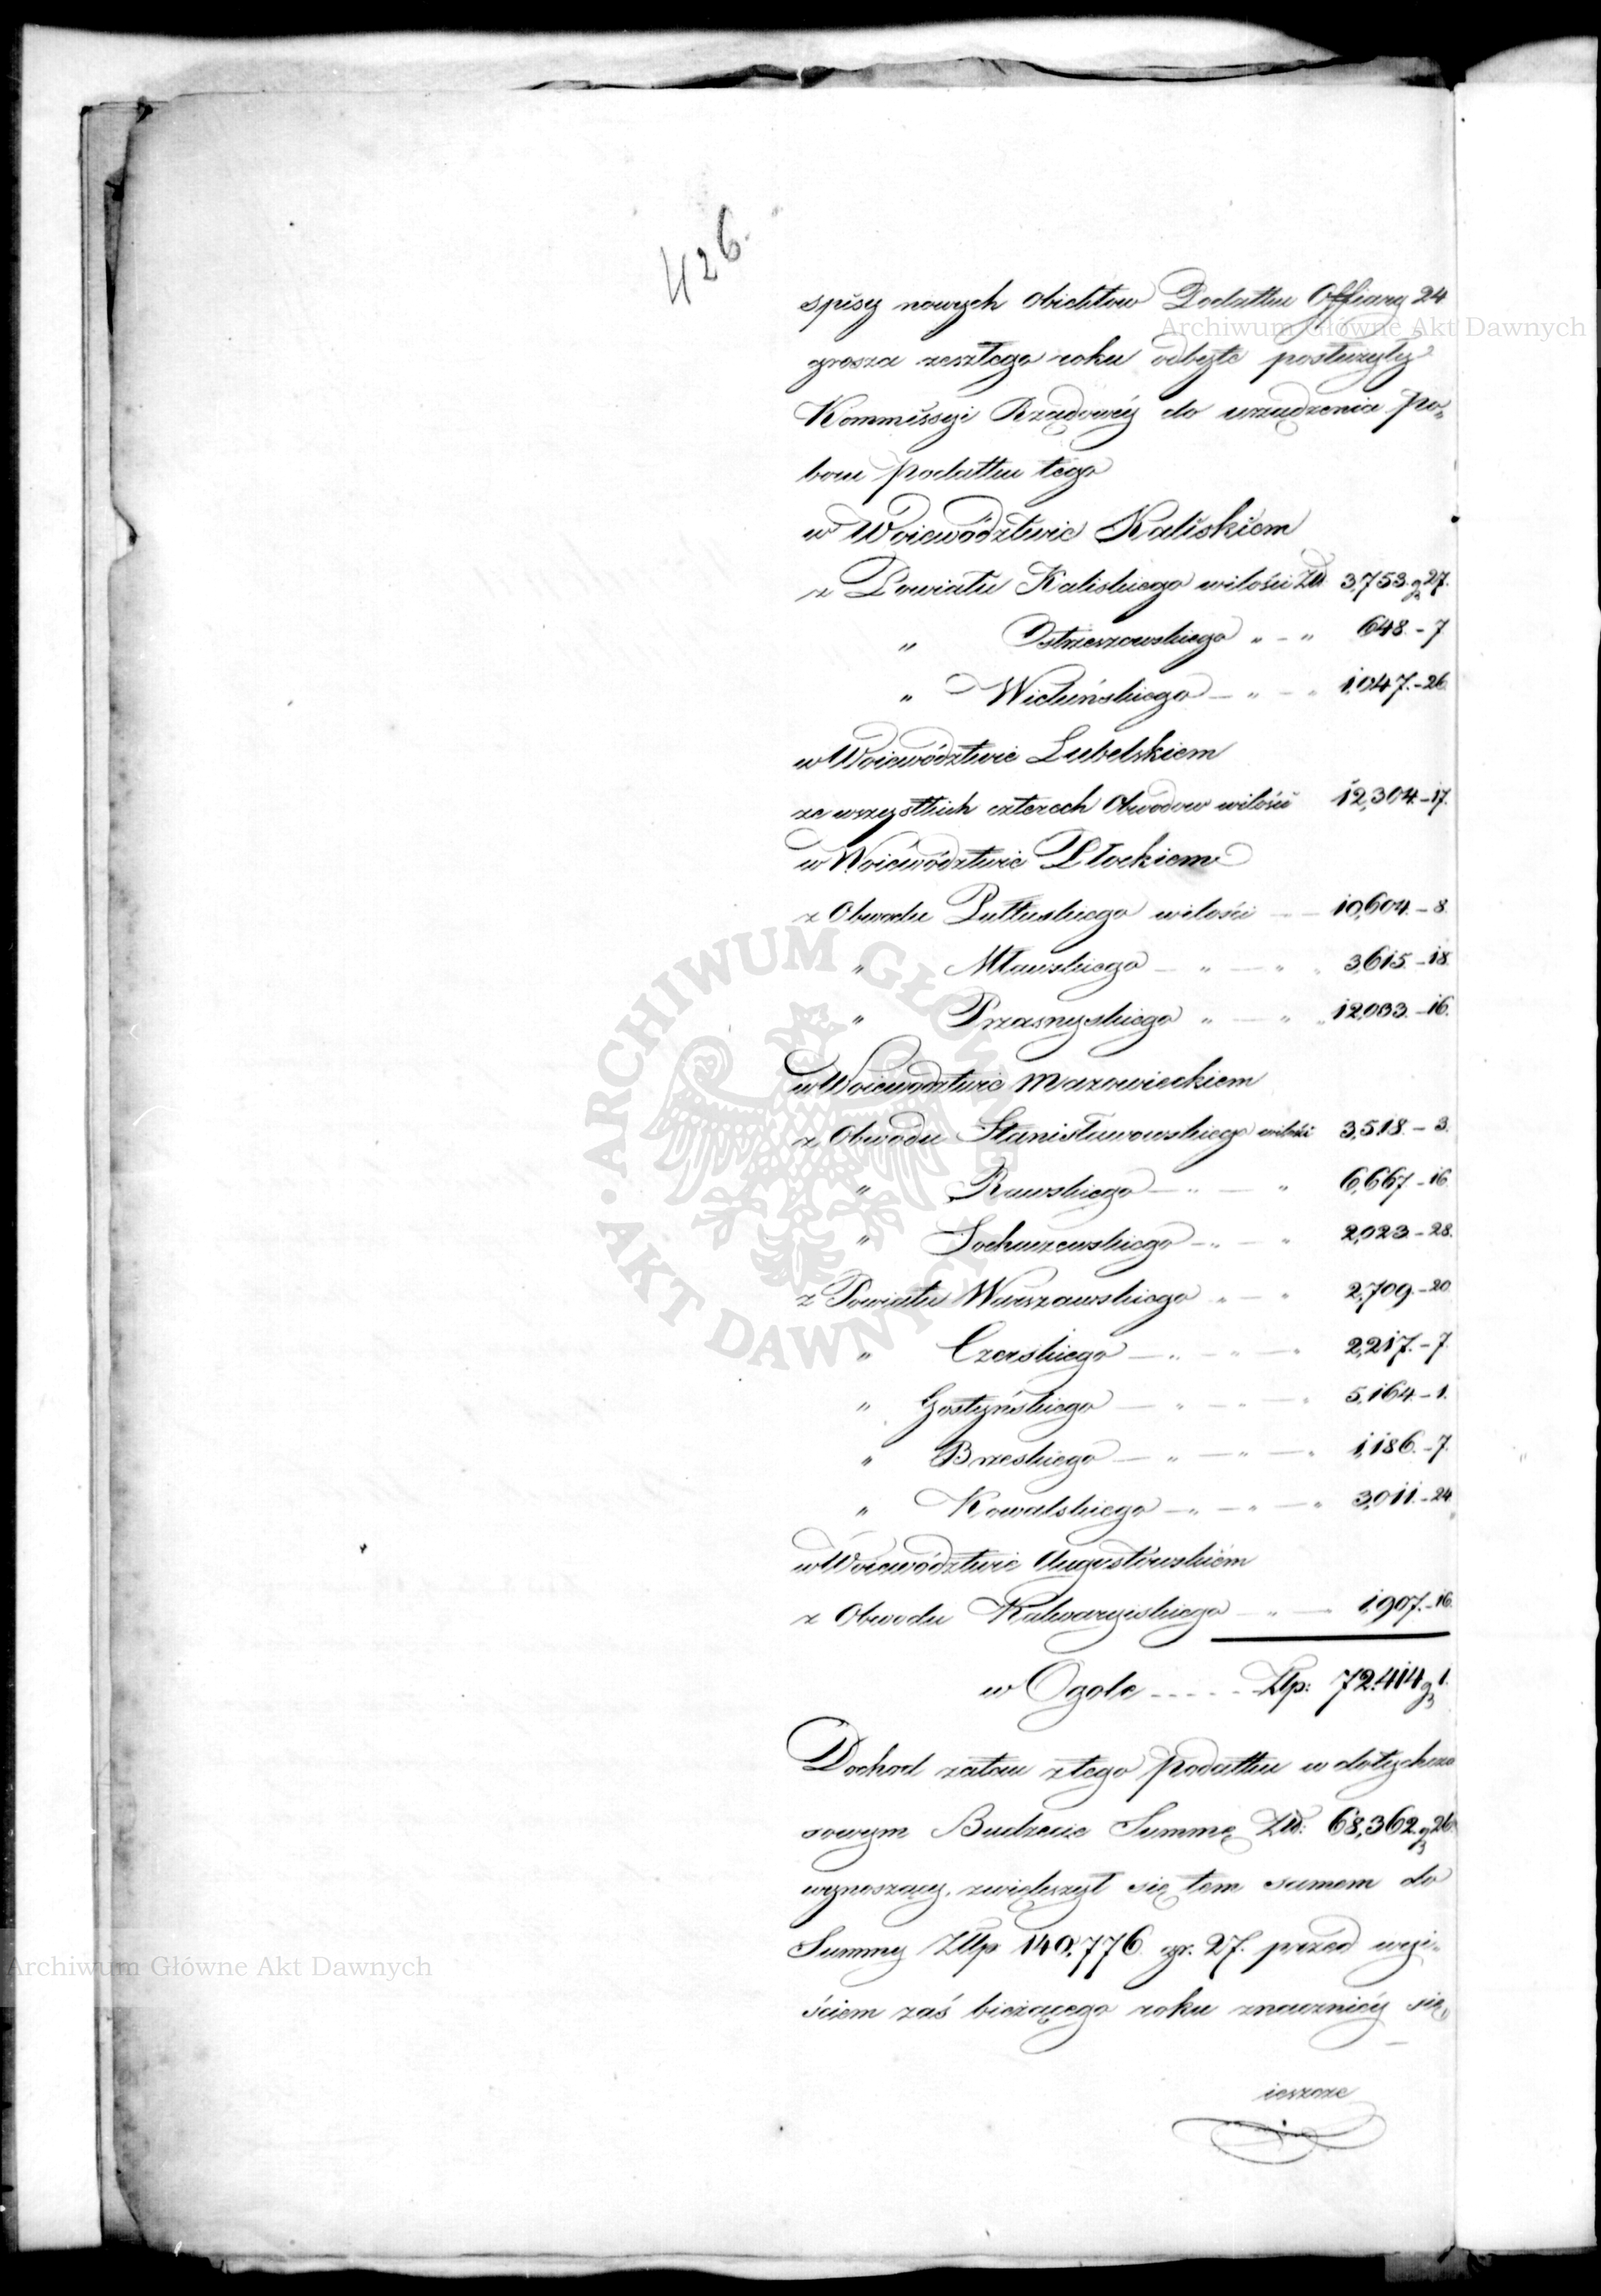 426.
spisy nowych obiektow Podatku Offiary 24
grosza zeszłego roku odbyte posłużyły
Kommissyi Rządowéy do urządzenia po„
boru podatku tego
w Woiewództwie Kaliskiem
z Powiatu Kaliskiego wilości Złł 3,753. g 27.
„ Ostrzeszowskiego „ – „ 648. – 7
„ Wieluńskiego – „ – „ 1,047. – 26
w Woiewództwie Lubelskiem
ze wszystkich czterech Obwodow wilości 12,304. – 17.
w Woiewództwie Płockiem
z Obwodu Pułtuskiego wilości — 10,604. – 8.
„ Mławskiego – „ — „ „ 3,615. – 18.
„ Przasnyskiego „ — „ „ 12,033. – 16.
w Woiewodztwie Mazowieckiem
z Obwodu Stanisławowskiego wilości 3,518. – 3.
„ Rawskiego – „ — „ 6,667 – 16
„ Sochaczewskiego – „ — „ 2,023 – 28.
z Powiatu Warszawskiego „ — „ 2,709. – 20
„ Czerskiego — „ – „ — „ 2,217. – 7.
„ Gostyńskiego — „ – „ — „ 5,164. – 1.
„ Brzeskiego — „ — „ — „ 1,186. – 7.
„ Kowalskiego – „ – „ — „ 3,011. – 24
w Woiewództwie Augustowskiém
z Obwodu Kalwaryiskiego — „ — 1,907. – 16.
w Ogole - - - - - Złp: 72,414 g 1.
Dochod zatem z tego podatku w dotychcza
sowym Budżecie Summę Złł: 68,362. g 26.
wynoszący, zwiększył się tem samem do
Summy Złłp 140,776 gr. 27. przed wyi„
ściem zaś bieżącego roku znaczniéy się
ieszcze
Archiwum Główne Akt Dawnych
Archiwum Główne Akt Dawnych
ARCHIWUM GŁÓWNE AKT DAWNYCH